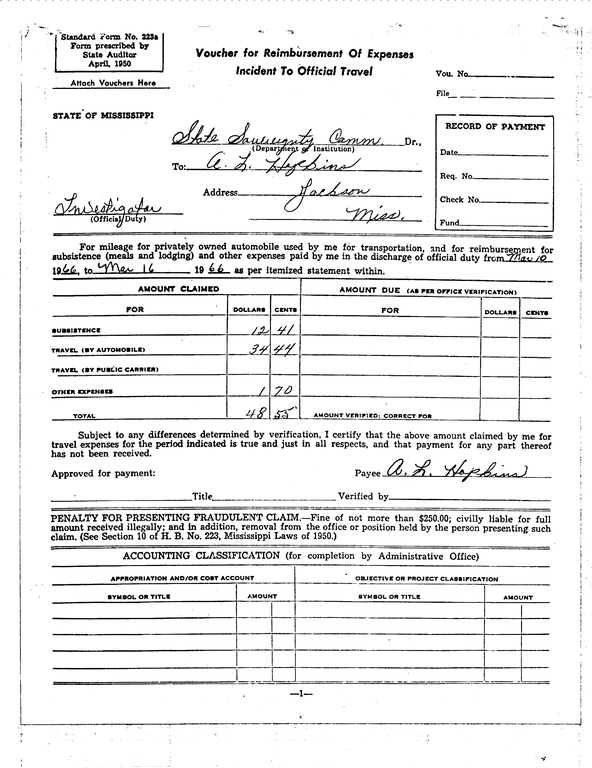 Standard Form No. 223a
Form prescribed by
State Auditor
April, 1950
Attach Vouchers Here
Voucher for Reimbursement Of Expenses
Incident To Official Travel
Vou. No.
File
STATE OF MISSISSIPPI
State Sovereignty Comm. Dr.,
(Department or Institution)
To: A. L. Hopkins
Address Jackson
Miss.
Investigator
(Official Duty)
RECORD OF PAYMENT
Date
Req. No.
Check No.
Fund
For mileage for privately owned automobile used by me for transportation, and for reimbursement for
subsistence (meals and lodging) and other expenses paid by me in the discharge of official duty from Mar 10
1966, to Mar 16 1966 as per itemized statement within.
AMOUNT CLAIMED AMOUNT DUE (AS PER OFFICE VERIFICATION)
FOR DOLLARS CENTS FOR DOLLARS CENTS
SUBSISTENCE 12 41
TRAVEL (BY AUTOMOBILE) 34 44
TRAVEL (BY PUBLIC CARRIER)
OTHER EXPENSES 1 70
TOTAL 48 55 AMOUNT VERIFIED: CORRECT FOR
Subject to any differences determined by verification, I certify that the above amount claimed by me for
travel expenses for the period indicated is true and just in all respects, and that payment for any part thereof
has not been received.
Approved for payment: Payee A. L. Hopkins
Title Verified by
PENALTY FOR PRESENTING FRAUDULENT CLAIM.—Fine of not more than $250.00; civilly liable for full
amount received illegally; and in addition, removal from the office or position held by the person presenting such
claim. (See Section 10 of H. B. No. 223, Mississippi Laws of 1950.)
ACCOUNTING CLASSIFICATION (for completion by Administrative Office)
APPROPRIATION AND/OR COST ACCOUNT OBJECTIVE OR PROJECT CLASSIFICATION
SYMBOL OR TITLE AMOUNT SYMBOL OR TITLE AMOUNT
—1—